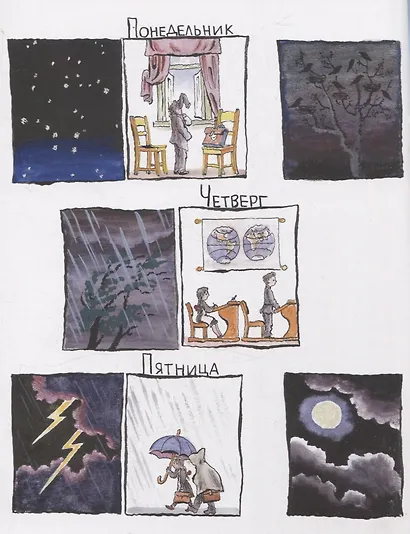 Понедельник
Четверг
Пятница